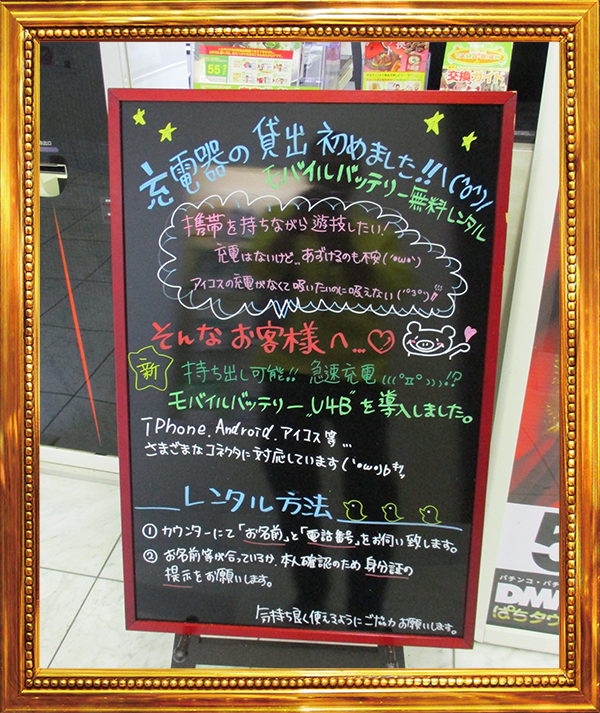 充電器の貸出 初めました!!\(^o^)/
モバイルバッテリー無料レンタル
携帯を持ちながら遊技したい!
充電はないけど…あずけるのも不安(´・ω・`)
アイコスの充電がなくて吸いたいのに吸えない(°3°)!!
そんなお客様へ…♡
新
持ち出し可能!! 急速充電(((°Д°)))!?
モバイルバッテリー
を導入しました。
iPhone、Android、アイコス等…
さまざまなコネクタに対応しています(`・ω・´)b
レンタル方法
① カウンターにて「お名前」と「電話番号」をお伺い致します。
② お名前等が合っているか、本人確認のため身分証の
提示をお願いします。
気持ち良く使えるようにご協力お願いします。
55
交換ガイド
5
パチンコ・パチ
DMM
ぱちタウ